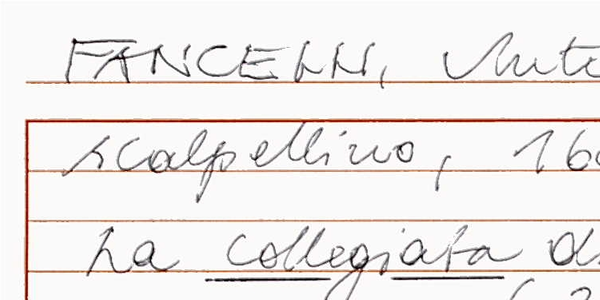 FANCELLI,
scalpellino, 16
La collegiata d